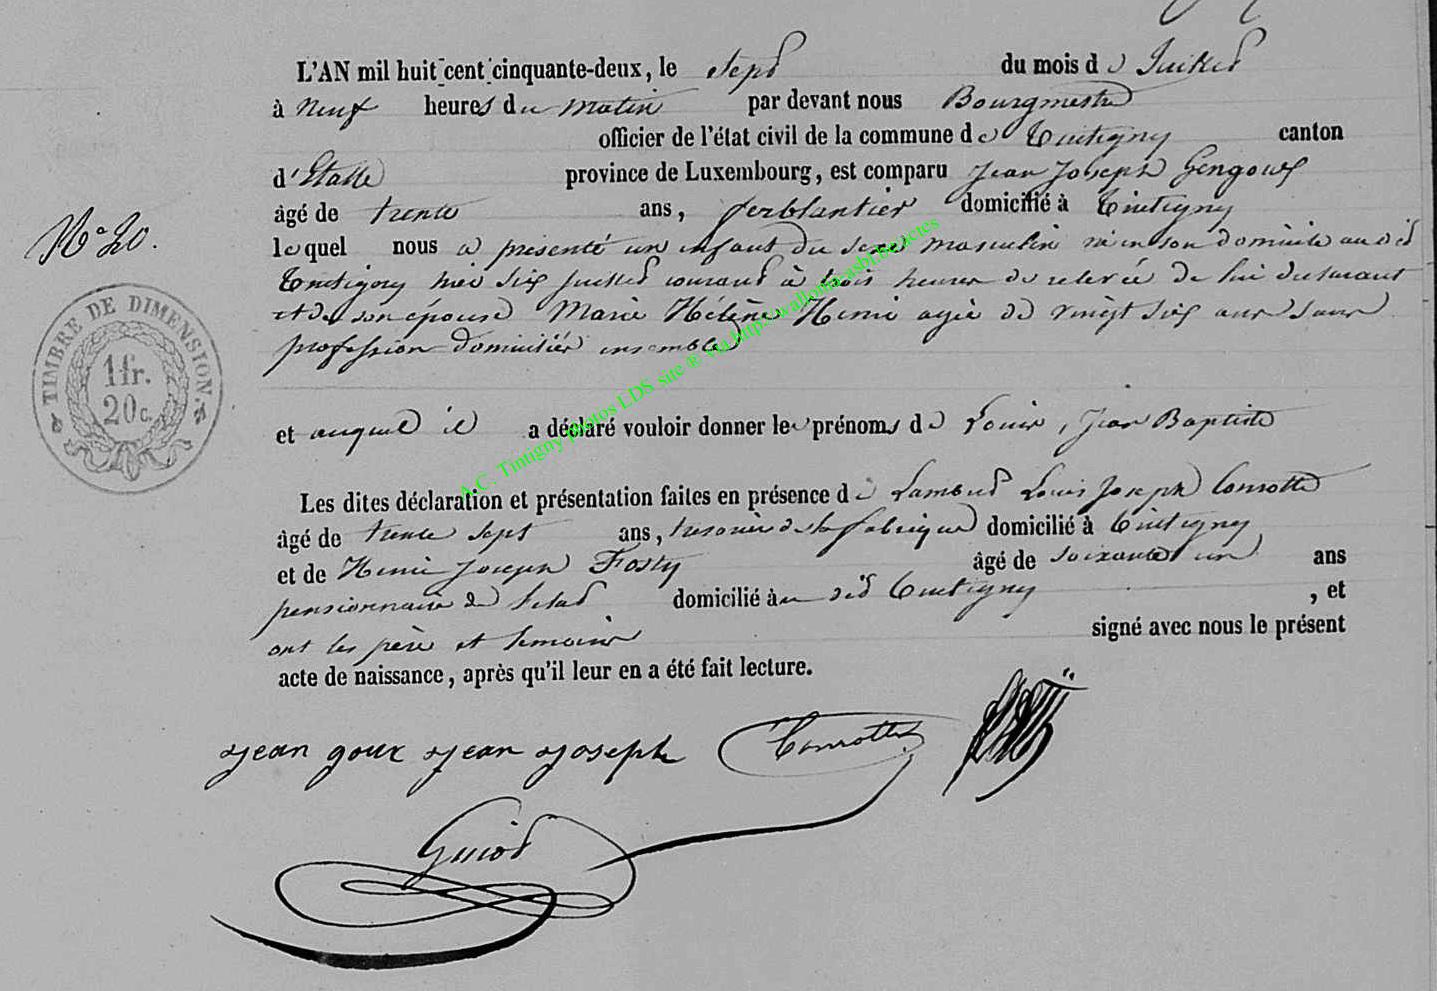 L'AN mil huit cent cinquante-deux, le sept du mois de Juillet
à neuf heures du matin par devant nous Bourgmestre
officier de l'état civil de la commune de Tintigny canton
d'Etalle province de Luxembourg, est comparu Jean Joseph Gengoux
âgé de trente ans, ferblantier domicilié à Tintigny
N° 20.
lequel nous a présenté un enfant du sexe masculin né en son domicile au dit
Tintigny hier six juillet courant à trois heures de relevée de lui declarant
et de son épouse Marie Hélène Henri agée de vingt six ans sans
profession domiciliés ensemble
TIMBRE DE DIMENSION.
1 fr.
20 c.
et auquel il a déclaré vouloir donner les prénoms de Louis, Jean Baptiste
Les dites déclaration et présentation faites en présence de Lambert Louis Joseph Conrotte
âgé de trente sept ans, tresorier de la fabrique domicilié à Tintigny
et de Henri Joseph Fosty âgé de soixante un ans
pensionnaire de l'etat domicilié à au dit Tintigny, et
ont les père et temoins signé avec nous le présent
acte de naissance, après qu'il leur en a été fait lecture.
jean goux jean joseph Conrotte
Guiot
A.C. Tintigny photos LDS site ® via http://wallonia-asbl.be/actes